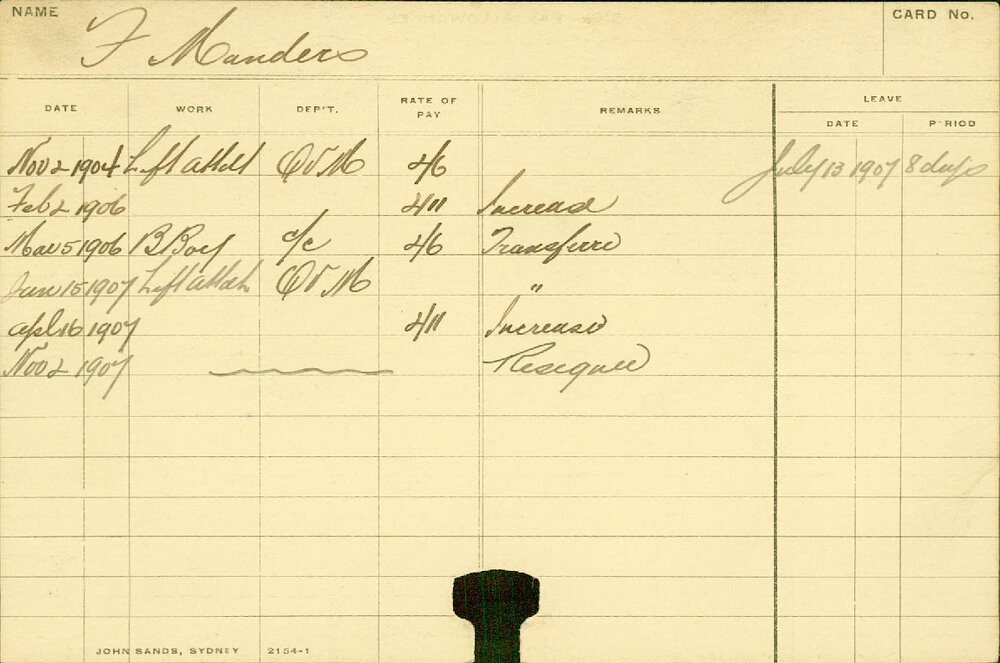 NAME
F Manders
CARD No.
DATE WORK DEP'T. RATE OF PAY REMARKS LEAVE
DATE PERIOD
Nov 2 1904 Lift Attdt QVM 4/6 July 13 1907 8 days
Feb 2 1906 4/11 Increase
Mar 5 1906 B Boy c/c 4/6 Transferre
Jan 15 1907 Lift Attdt QVM "
Apl 16 1907 4/11 Increase
Nov 2 1907 Resigned
JOHN SANDS, SYDNEY 2154-1